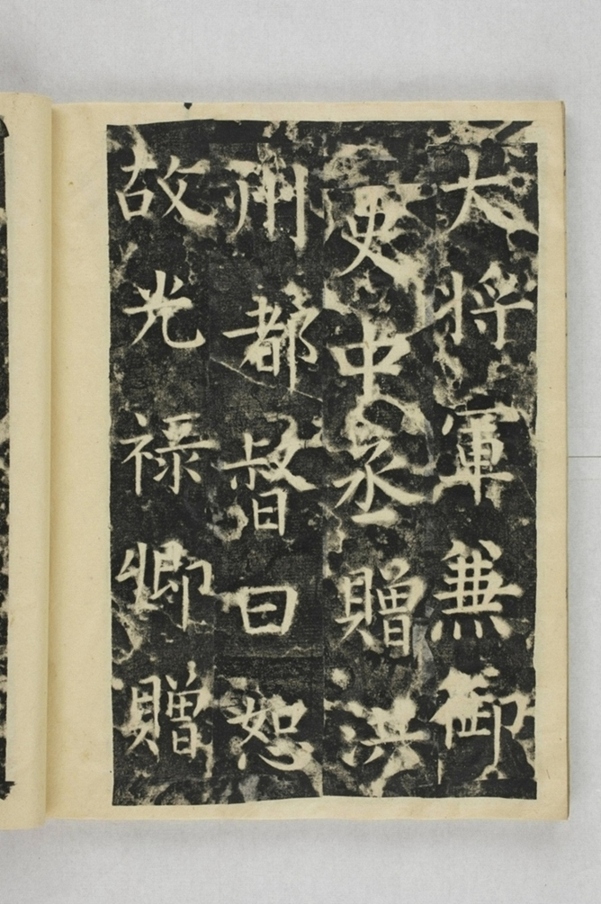 大将軍兼御
史中丞贈洪
州都督曰恕
故光禄卿贈